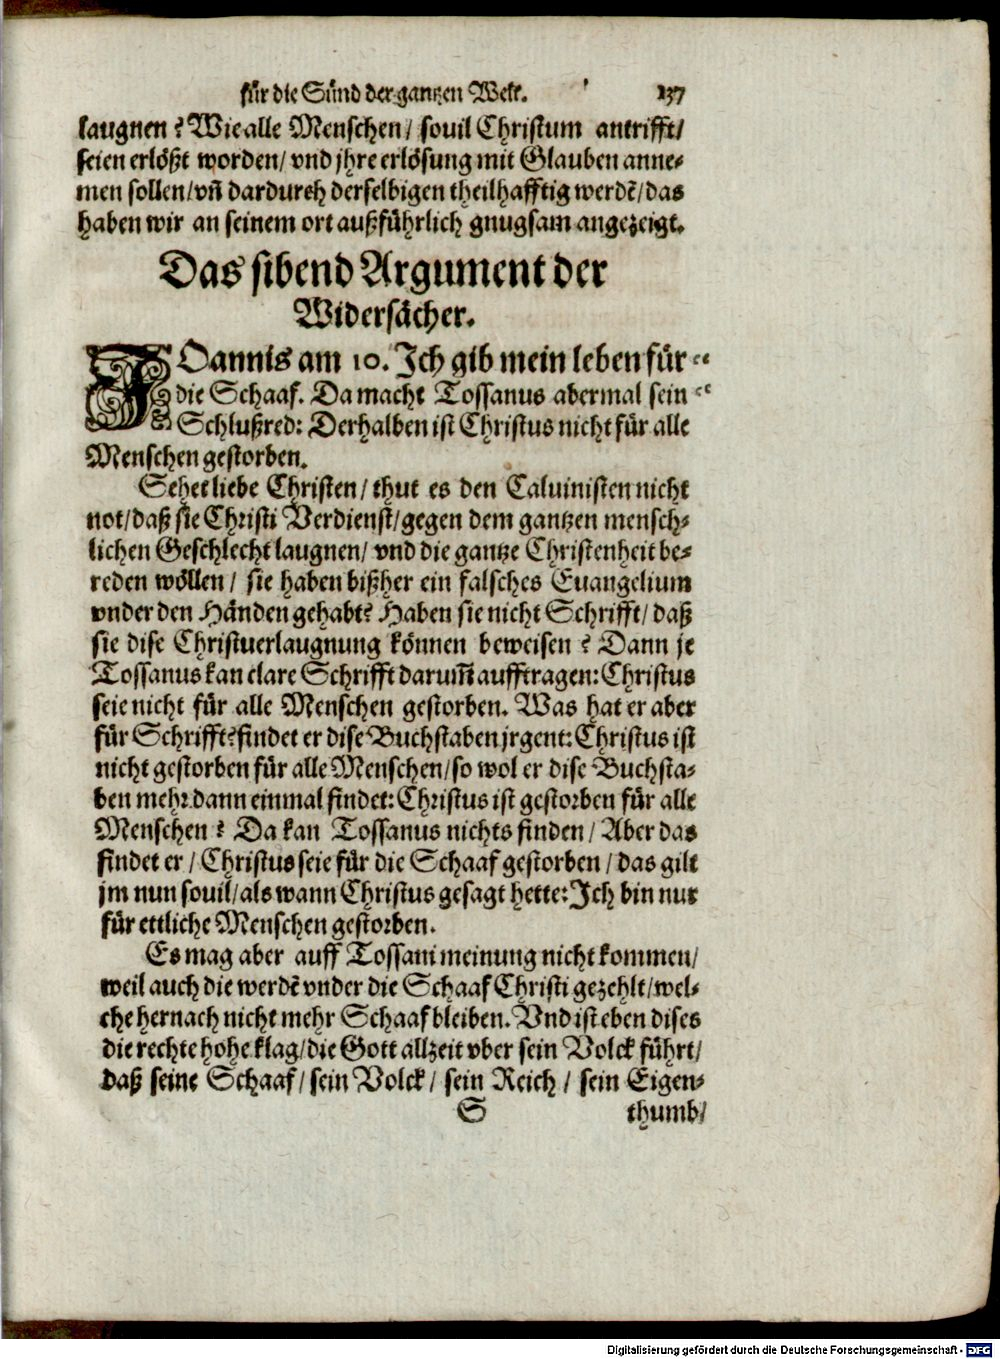 für die Sünd der gantzen Welt. 137
laugnen? Wie alle Menschen/ souil Christum antrifft/
seien erlößt worden/ vnd jhre erlösung mit Glauben anne-
men sollen/ vñ dardurch derselbigen theilhafftig werdẽ/ das
haben wir an seinem ort außführlich gnugsam angezeigt.
Das sibend Argument der
Widersächer.
JOannis am 10. Ich gib mein leben für "
die Schaaf. Da macht Tossanus abermal sein "
Schlußred: Derhalben ist Christus nicht für alle
Menschen gestorben.
Sehet liebe Christen/ thut es den Caluinisten nicht
not/ daß sie Christi Verdienst/ gegen dem gantzen mensch-
lichen Geschlecht laugnen/ vnd die gantze Christenheit be-
reden wöllen/ sie haben bißher ein falsches Euangelium
vnder den Händen gehabt? Haben sie nicht Schrifft/ daß
sie dise Christuerlaugnung können beweisen? Dann je
Tossanus kan clare Schrifft darum̃ aufftragen: Christus
seie nicht für alle Menschen gestorben. Was hat er aber
für Schrifft? findet er dise Buchstaben jrgent: Christus ist
nicht gestorben für alle Menschen/ so wol er dise Buchsta-
ben mehr dann einmal findet: Christus ist gestorben für alle
Menschen? Da kan Tossanus nichts finden/ Aber das
findet er/ Christus seie für die Schaaf gestorben/ das gilt
jm nun souil/ als wann Christus gesagt hette: Ich bin nur
für ettliche Menschen gestorben.
Es mag aber auff Tossani meinung nicht kommen/
weil auch die werdẽ vnder die Schaaf Christi gezehlt/ wel-
che hernach nicht mehr Schaaf bleiben. Vnd ist eben dises
die rechte hohe klag/ die Gott allzeit vber sein Volck führt/
daß seine Schaaf/ sein Volck/ sein Reich/ sein Eigen-
S thumb/
Digitalisierung gefördert durch die Deutsche Forschungsgemeinschaft - DFG